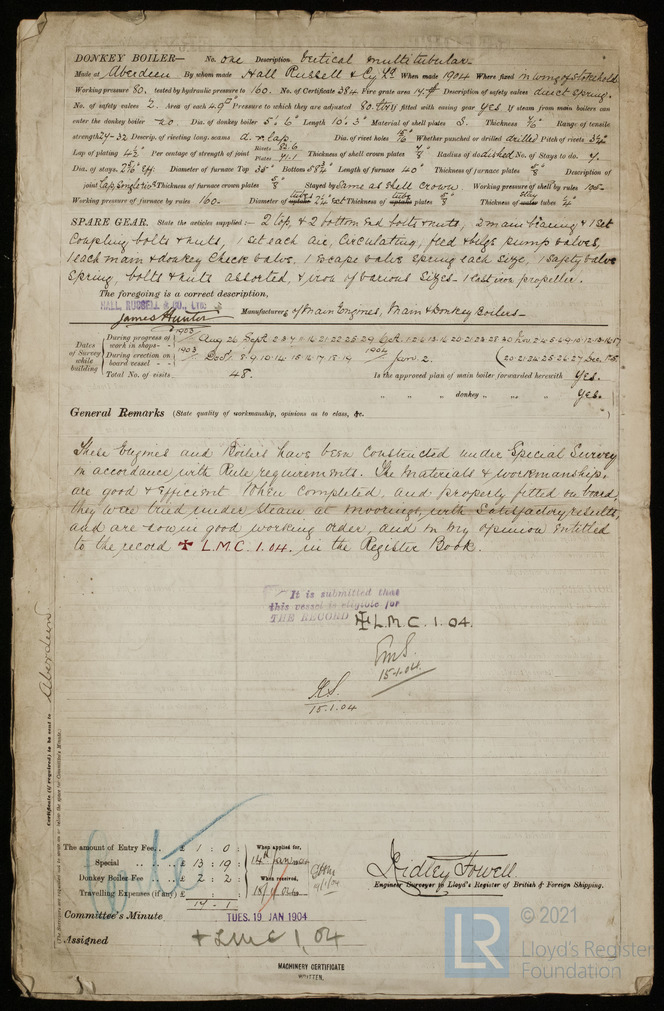 DONKEY BOILER— No. one Description Vertical multitubular
Made at Aberdeen By whom made Hall Russell & Coy Ld. When made 1904 Where fixed in wing of stokehold
Working pressure 80. tested by hydraulic pressure to 160. No. of Certificate 384 Fire grate area 17 ft Description of safety valves direct spring.
No. of safety valves 2. Area of each 4.9" Pressure to which they are adjusted 80. If fitted with easing gear yes. If steam from main boilers can
enter the donkey boiler no. Dia. of donkey boiler 5'. 6" Length 10'. 3" Material of shell plates S. Thickness 7/16" Range of tensile
strength 27-32 Descrip. of riveting long. seams d. r. lap. Dia. of rivet holes 15/16" Whether punched or drilled drilled Pitch of rivets 3 1/4"
Lap of plating 4 1/2" Per centage of strength of joint Rivets 82.6 Plates 71.1 Thickness of shell crown plates 7/8" Radius of do. dished No. of Stays to do. 7.
Dia. of stays. 2 5/16" Eff: Diameter of furnace Top 35" Bottom 58 3/4" Length of furnace 40" Thickness of furnace plates 5/8" Description of
joint lap, single riv. Thickness of furnace crown plates 5/8" Stayed by same as shell crown. Working pressure of shell by rules 105
Working pressure of furnace by rules 160. Diameter of uptake tubes 2 1/4" Ext Thickness of uptake tube plates 5/8" Thickness of water stay tubes 1/4"
SPARE GEAR. State the articles supplied:— 2 top, & 2 bottom End bolts & nuts, 2 main bearing & 1 set
Coupling bolts & nuts, 1 set each air, Circulating, feed & bilge pump valves,
1 each main & donkey Check valve, 1 escape valve spring each size, 1 safety valve
Spring, bolts & nuts assorted, & iron of various sizes. 1 cast iron propeller.
The foregoing is a correct description,
HALL, RUSSELL & CO., LTD.
James Hunter Manufacturer of Main Engines, Main & Donkey Boilers
Dates of Survey while building
During progress of work in shops - - 1903 Aug 26 Sept
During erection on board vessel - - 1903 Dec. 8. 9. 10. 14. 15. 16. 17. 18. 19 1904 Jan. 2.
Total No. of visits 48. Is the approved plan of main boiler forwarded herewith Yes.
" " " donkey " " " Yes.
General Remarks (State quality of workmanship, opinions as to class, &c.
These Engines and Boilers have been constructed under Special Survey
in accordance with Rule requirements. The materials & workmanship,
are good & Efficient. When completed, and properly fitted on board,
they were tried under steam at moorings, with satisfactory results,
and are now in good working order, and in my opinion entitled
to the record ✠ L.M.C. 1.04. in the Register Book.
It is submitted that
this vessel is eligible for
THE RECORD ✠ L.M.C. 1.04.
15.1.04
15.1.04
Certificate (if required) to be sent to Aberdeen
The amount of Entry Fee.. £ 1 : 0 : When applied for,
Special .. £ 13 : 19 : 14th Jan 1904
Donkey Boiler Fee .. £ 2 : 2 : When received,
Travelling Expenses (if any) £ : :
17 - 1
Ridley Fowell
Engineer Surveyor to Lloyd's Register of British & Foreign Shipping.
Committee's Minute TUES. 19 JAN 1904
Assigned + LMC 1,04
MACHINERY CERTIFICATE
WRITTEN.
LR
© 2021
Lloyd's Register
Foundation